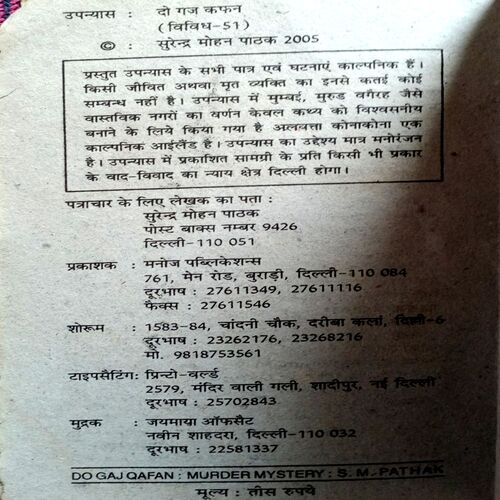 उपन्यास : दो गज कफन
(विविध-51)
© : सुरेन्द्र मोहन पाठक 2005
प्रस्तुत उपन्यास के सभी पात्र एवं घटनाएं काल्पनिक हैं।
किसी जीवित अथवा मृत व्यक्ति का इनसे कतई कोई
सम्बन्ध नहीं है। उपन्यास में मुम्बई, मुरुड वगैरह जैसे
वास्तविक नगरों का वर्णन केवल कथ्य को विश्वसनीय
बनाने के लिये किया गया है अलबत्ता कोनाकोना एक
काल्पनिक आईलैंड है। उपन्यास का उद्देश्य मात्र मनोरंजन
है। उपन्यास में प्रकाशित सामग्री के प्रति किसी भी प्रकार
के वाद-विवाद का न्याय क्षेत्र दिल्ली होगा।
पत्राचार के लिए लेखक का पता :
सुरेन्द्र मोहन पाठक
पोस्ट बाक्स नम्बर 9426
दिल्ली-110 051
प्रकाशक : मनोज पब्लिकेशन्स
761, मेन रोड, बुराड़ी, दिल्ली-110 084
दूरभाष : 27611349, 27611116
फैक्स : 27611546
शोरूम : 1583-84, चांदनी चौक, दरीबा कलां, दिल्ली-6
दूरभाष : 23262176, 23268216
मो. 9818753561
टाइपसैटिंग: प्रिन्टो-वर्ल्ड
2579, मंदिर वाली गली, शादीपुर, नई दिल्ली
दूरभाष : 25702843
मुद्रक : जयमाया ऑफसैट
नवीन शाहदरा, दिल्ली-110 032
दूरभाष : 22581337
DO GAJ QAFAN : MURDER MYSTERY : S. M. PATHAK
मूल्य : तीस रुपये